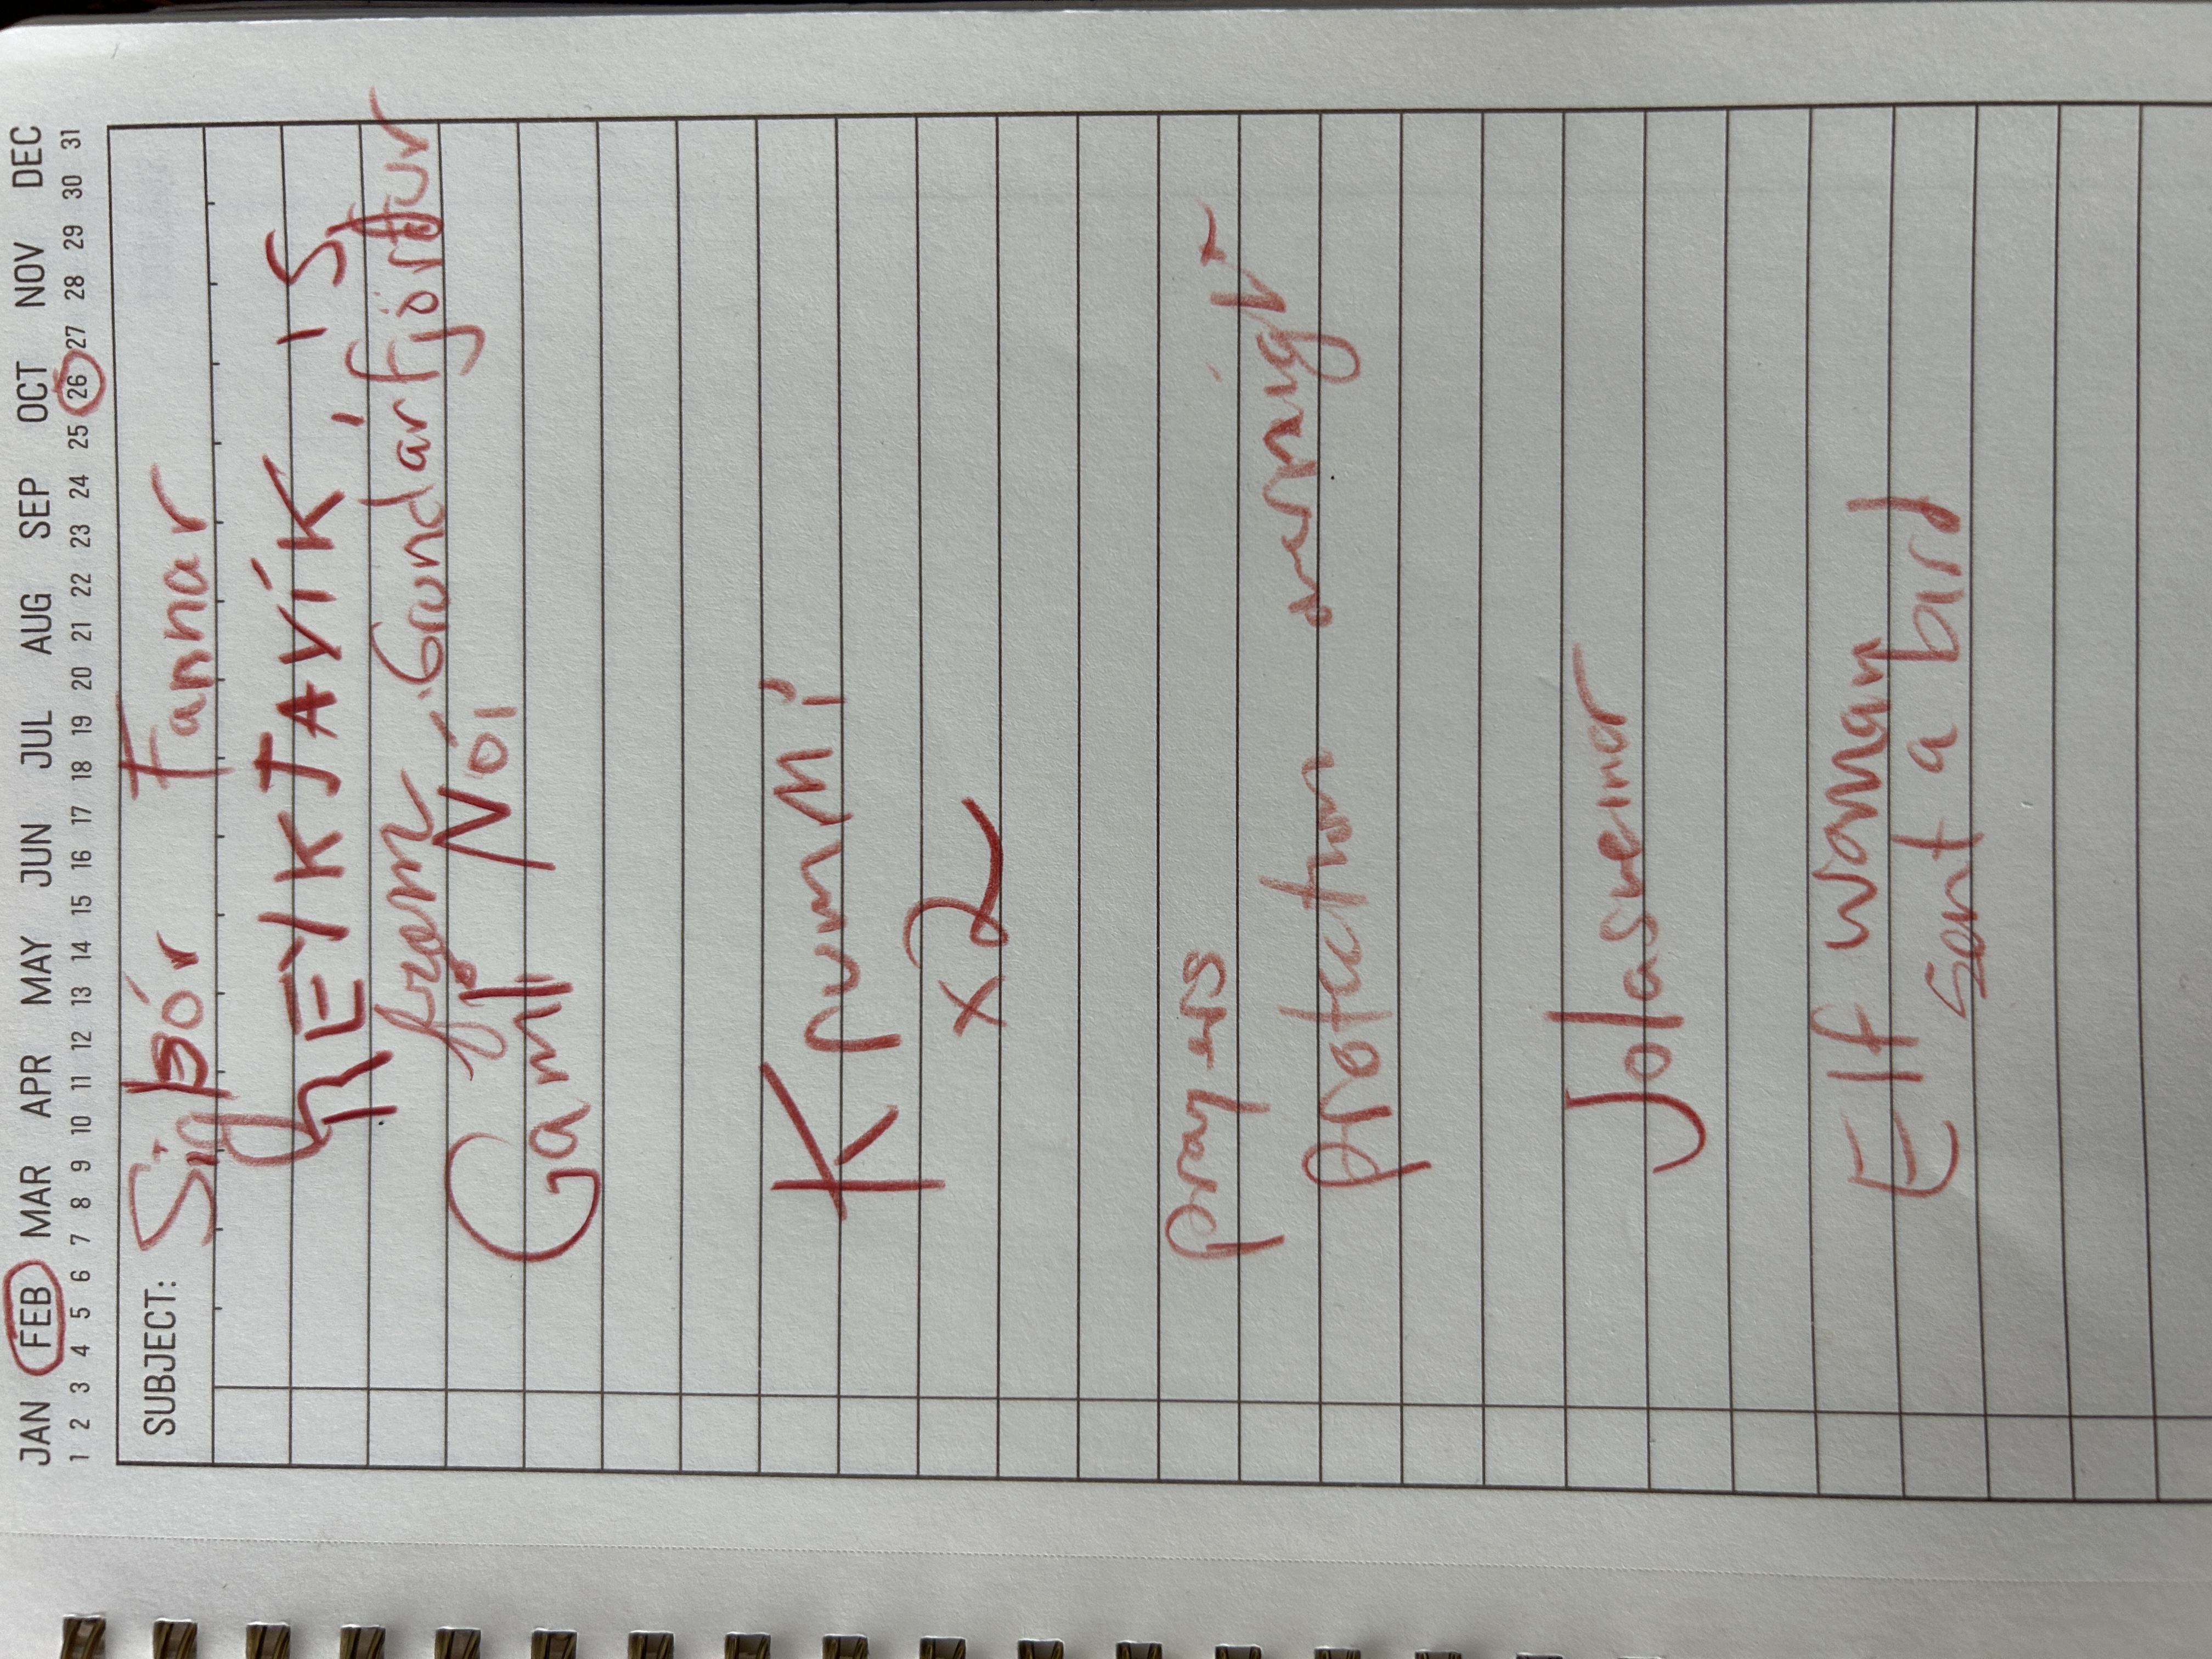 JAN FEB MAR APR MAY JUN JUL AUG SEP OCT NOV DEC
1 2 3 4 5 6 7 8 9 10 11 12 13 14 15 16 17 18 19 20 21 22 23 24 25 26 27 28 29 30 31
SUBJECT: Sigþór Fannar
REYKJAVÍK, IS
from: Grundarfjörður
Gamli Nói
Krummi
x2
prayers
protection overnight
Jólasveinar
Elf woman
sent a bird